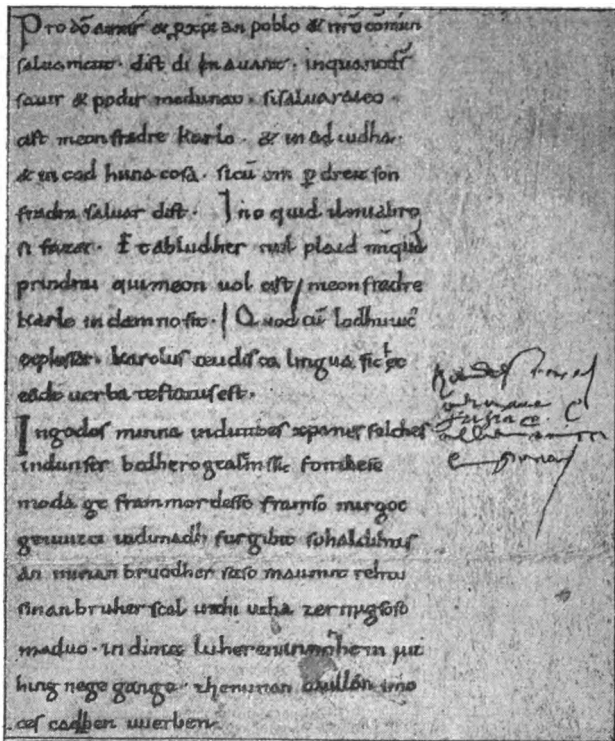 Pro dõ amur & pxp̃ian poblo & nr̃o cõmun
saluament. dist di en auant. inquantd̃s
sauir & podir medunat. sisaluaraieo.
cist meonfradre karlo. & in ad iudha.
& in cad huna cosa. sicũ om ꝑ dreit son
fradra saluar dist. Ino quid il mialtre
si fazet. Et abludher nul plaid nũquã
prindrai qui meon uol cist meonfradre
karle in damno sit. Quod cũ lodhuuic̃
explesset. karolus teudisca lingua sic ec
eadẽ uerba testatus est.
Ingodes minna indinthes xpanes folches
indunser bedhero gealtnissi. fonthese
moda ge frammordesso framso mirgot
geuuizci indimadh furgibit sohaldihtes
an minan bruodher soso manmit rehtu
sinan bruher scal inthi utha zermigsoso
maduo. indimit luheren in nohein iut
hing nege gango. zheminan uuillon imo
ces cadhen uuerhen.